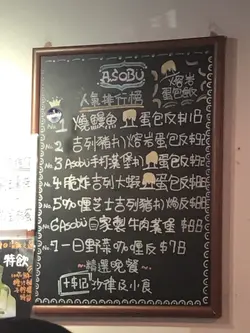 ASOBU
人氣排行榜
熔岩
蛋包飯
No.1 燒鰻魚 蛋包反
No.2 吉列豬扒熔岩蛋包反
No.3 Asobu手打漢堡扒蛋包反
No.4 脆炸吉列大蝦蛋包反
No.5 咖喱芝士吉列豬扒焗反
No.6 Asobu自家製牛肉漢堡 $88
No.7 一日野菜咖喱反 $78
～精選晚餐～
沙律及小食
特飲